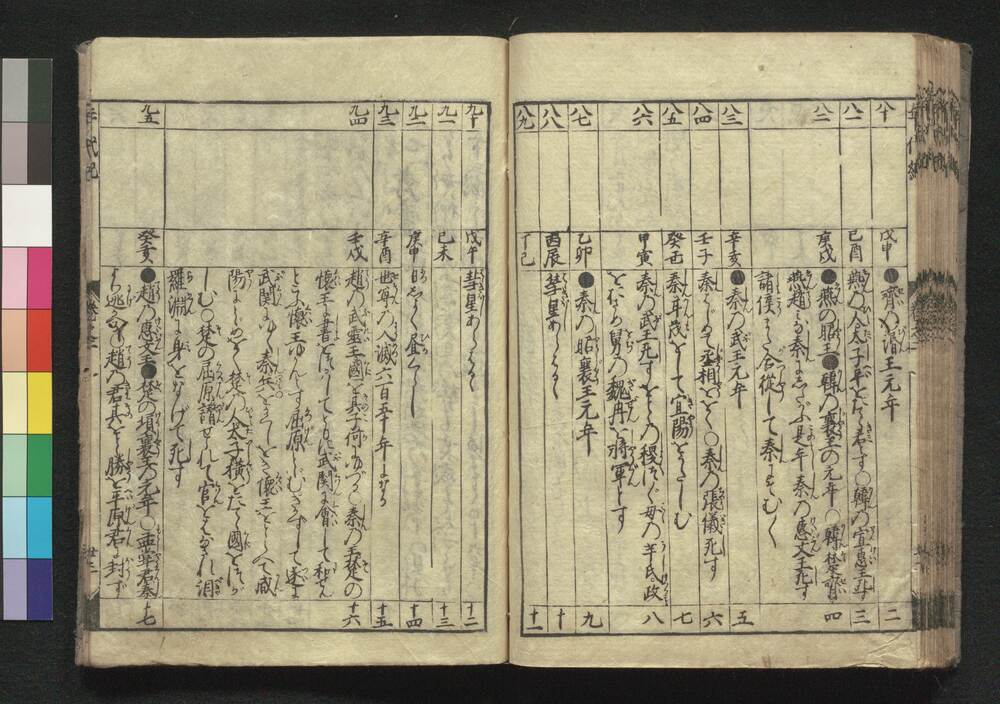 八十 戊申 ●齊の湣王元年 二
八一 己酉 燕の人太子平をたて君とす〇韓の宣惠王死す 三
八二 庚戌 ●燕の昭王●韓の襄王の元年〇韓楚齊 四
燕趙みな秦にしたがふ是年秦の惠文王死す
諸侯また合從して秦にそむく
八三 辛亥 ●秦の武王元年 五
八四 壬子 秦はじめて丞相ををく〇秦の張儀死す 六
八五 癸丑 秦甘茂をして宜陽をせむ 七
八六 甲寅 秦の武王死すをとゝの稷つぐ母の羋氏政 八
をとなり舅の魏冉を將軍とす
八七 乙卯 ●秦の昭襄王元年 九
八八 丙辰 彗星あらはる 十
八九 丁巳 十一
九十 戊午 彗星あらはる 十二
九一 己未 十三
九二 庚申 日しよく昼くらし 十四
九三 辛酉 世尊の入滅六百五十年になる 十五
九四 壬戌 趙の武靈王國を其子何にゆづる〇秦の王楚の 十六
懷王に書をおくりてともに武關に會して和せん
とふ懷王ゆかんとす屈原いさむきかずして遂に
武關にゆく秦兵をかくしをき懷王をとらへて咸
陽に 楚人太子橫をたて國をつが
しむ〇楚の屈原讒せられて官をとゞめられ汨
羅淵に身をなげて死す
九五 癸亥 ●趙の惠文王●楚の頃襄王の元年〇孟嘗君秦 十七
より逃かへる〇趙の君其弟勝を平原君に封ず
年代記
卷之一